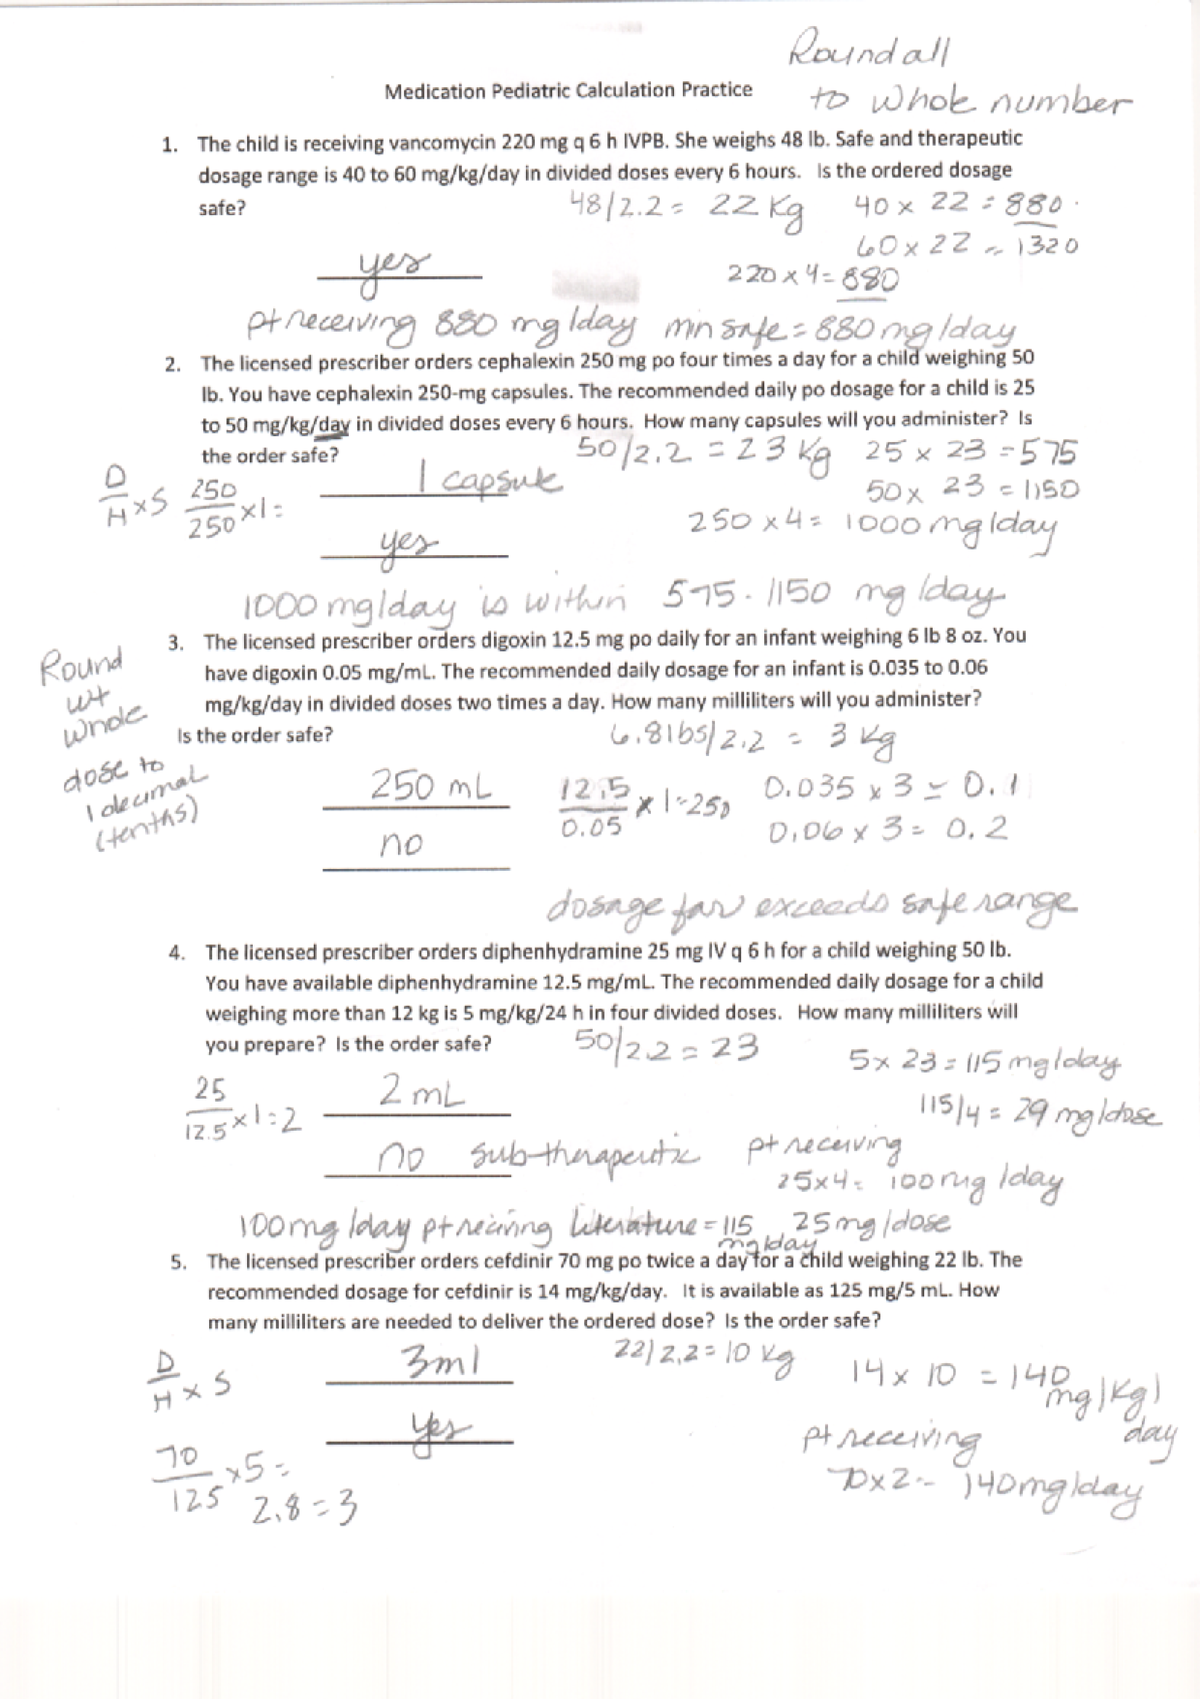 Round all
to whole number
Medication Pediatric Calculation Practice
1. The child is receiving vancomycin 220 mg q 6 h IVPB. She weighs 48 lb. Safe and therapeutic
dosage range is 40 to 60 mg/kg/day in divided doses every 6 hours. Is the ordered dosage
safe?
48/2.2 = 22 kg
40 x 22 = 880
60 x 22 = 1320
yes
220 x 4 = 880
pt receiving 880 mg/day min safe = 880 mg/day
2. The licensed prescriber orders cephalexin 250 mg po four times a day for a child weighing 50
lb. You have cephalexin 250-mg capsules. The recommended daily po dosage for a child is 25
to 50 mg/kg/day in divided doses every 6 hours. How many capsules will you administer? Is
the order safe?
50/2.2 = 23 kg
25 x 23 = 575
50 x 23 = 1150
D/H x S 250/250 x 1 =
1 capsule
250 x 4 = 1000 mg/day
yes
1000 mg/day is within 575 - 1150 mg/day
3. The licensed prescriber orders digoxin 12.5 mg po daily for an infant weighing 6 lb 8 oz. You
have digoxin 0.05 mg/mL. The recommended daily dosage for an infant is 0.035 to 0.06
mg/kg/day in divided doses two times a day. How many milliliters will you administer?
Is the order safe?
Round
wt
whole
dose to
1 decimal
(tenths)
6.8lbs/2.2 = 3 kg
250 mL
12.5/0.05 x 1 = 250
0.035 x 3 = 0.1
0.06 x 3 = 0.2
no
dosage far exceeds safe range
4. The licensed prescriber orders diphenhydramine 25 mg IV q 6 h for a child weighing 50 lb.
You have available diphenhydramine 12.5 mg/mL. The recommended daily dosage for a child
weighing more than 12 kg is 5 mg/kg/24 h in four divided doses. How many milliliters will
you prepare? Is the order safe?
50/2.2 = 23
5 x 23 = 115 mg/day
25/12.5 x 1 = 2
2 mL
115/4 = 29 mg/dose
no sub-therapeutic
pt receiving
25x4 = 100 mg/day
100mg/day pt reciving literature = 115 mg/day
25 mg/dose
5. The licensed prescriber orders cefdinir 70 mg po twice a day for a child weighing 22 lb. The
recommended dosage for cefdinir is 14 mg/kg/day. It is available as 125 mg/5 mL. How
many milliliters are needed to deliver the ordered dose? Is the order safe?
22/2.2 = 10 kg
D/H x S
3ml
14 x 10 = 140 mg/kg/day
yes
pt receiving
70x2 = 140mg/day
70/125 x5 =
2.8 = 3